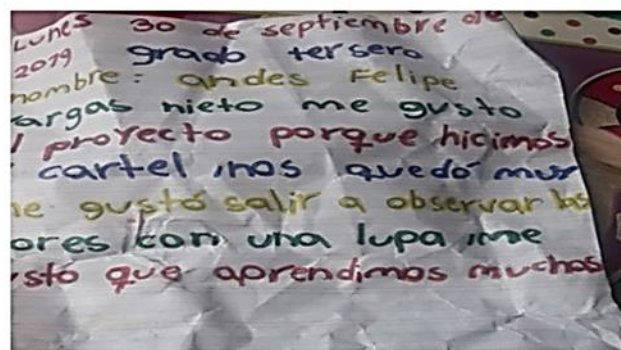 Lunes 30 de septiembre de
2019 grado tersero
nombre: andes Felipe
argas nieto me gusto
l proyecto porque hicimos
cartel ,nos quedó muy
e gustó salir a observar las
ores ,con una lupa ,me
sto que aprendimos muchas